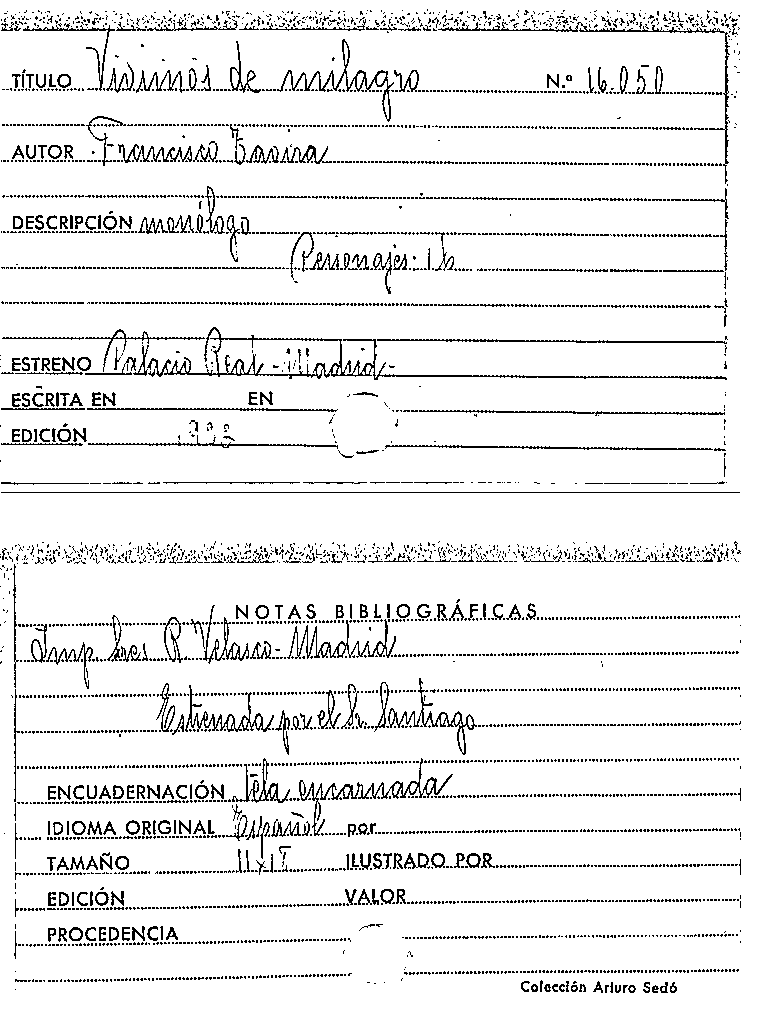 TÍTULO Vivimos de milagro N.º 16.050
AUTOR Francisco Tavira
DESCRIPCIÓN monólogo
Personajes: 1b
ESTRENO Palacio Real - Madrid -
ESCRITA EN EN
EDICIÓN
NOTAS BIBLIOGRÁFICAS
Imp. Suc: R Velasco - Madrid
Estrenada por el Sr. Santiago
ENCUADERNACIÓN tela encarnada
IDIOMA ORIGINAL Español por
TAMAÑO ILUSTRADO POR
EDICIÓN VALOR
PROCEDENCIA
Colección Arturo Sedó